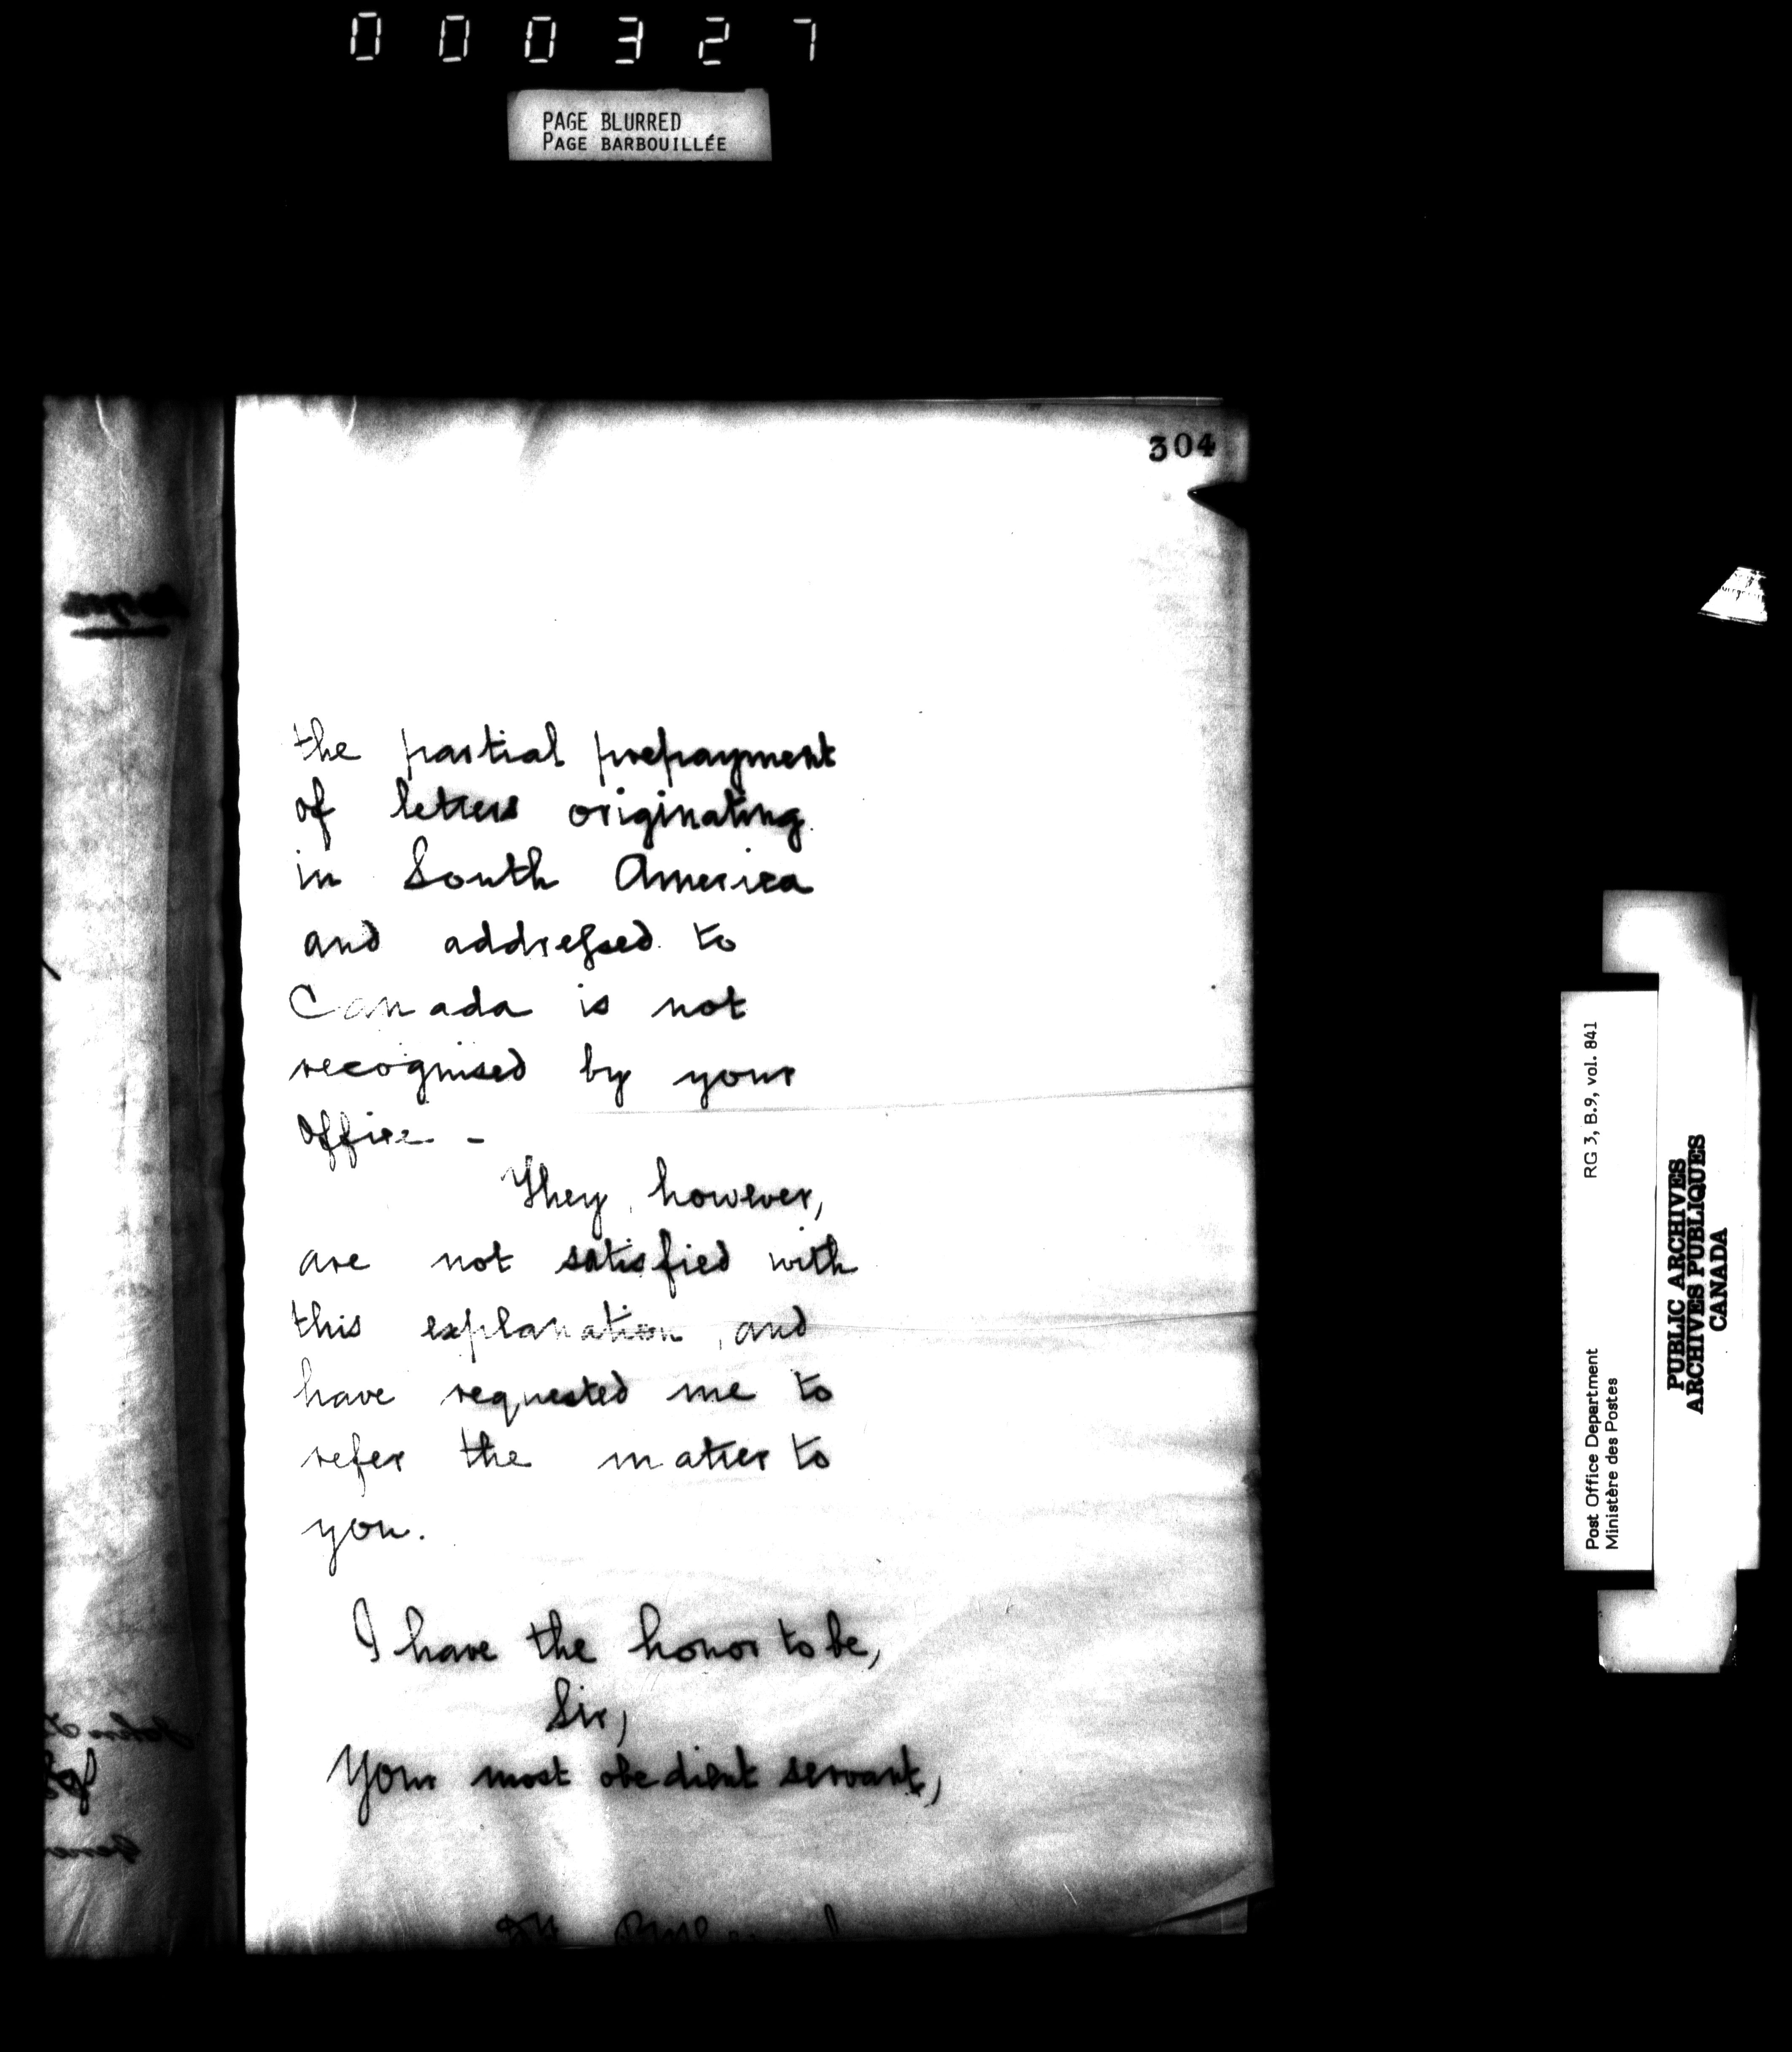 000327
PAGE BLURRED
PAGE BARBOUILLÉE
304
the partial prepayment
of letters originating
in South America
and addressed to
Canada is not
recognised by your
Office. -
They, however,
are not satisfied with
this explanation, and
have requested me to
refer the matter to
you.
I have the honor to be,
Sir,
Your most obedient servant,
RG 3, B.9, vol. 841
Post Office Department
Ministère des Postes
PUBLIC ARCHIVES
ARCHIVES PUBLIQUES
CANADA